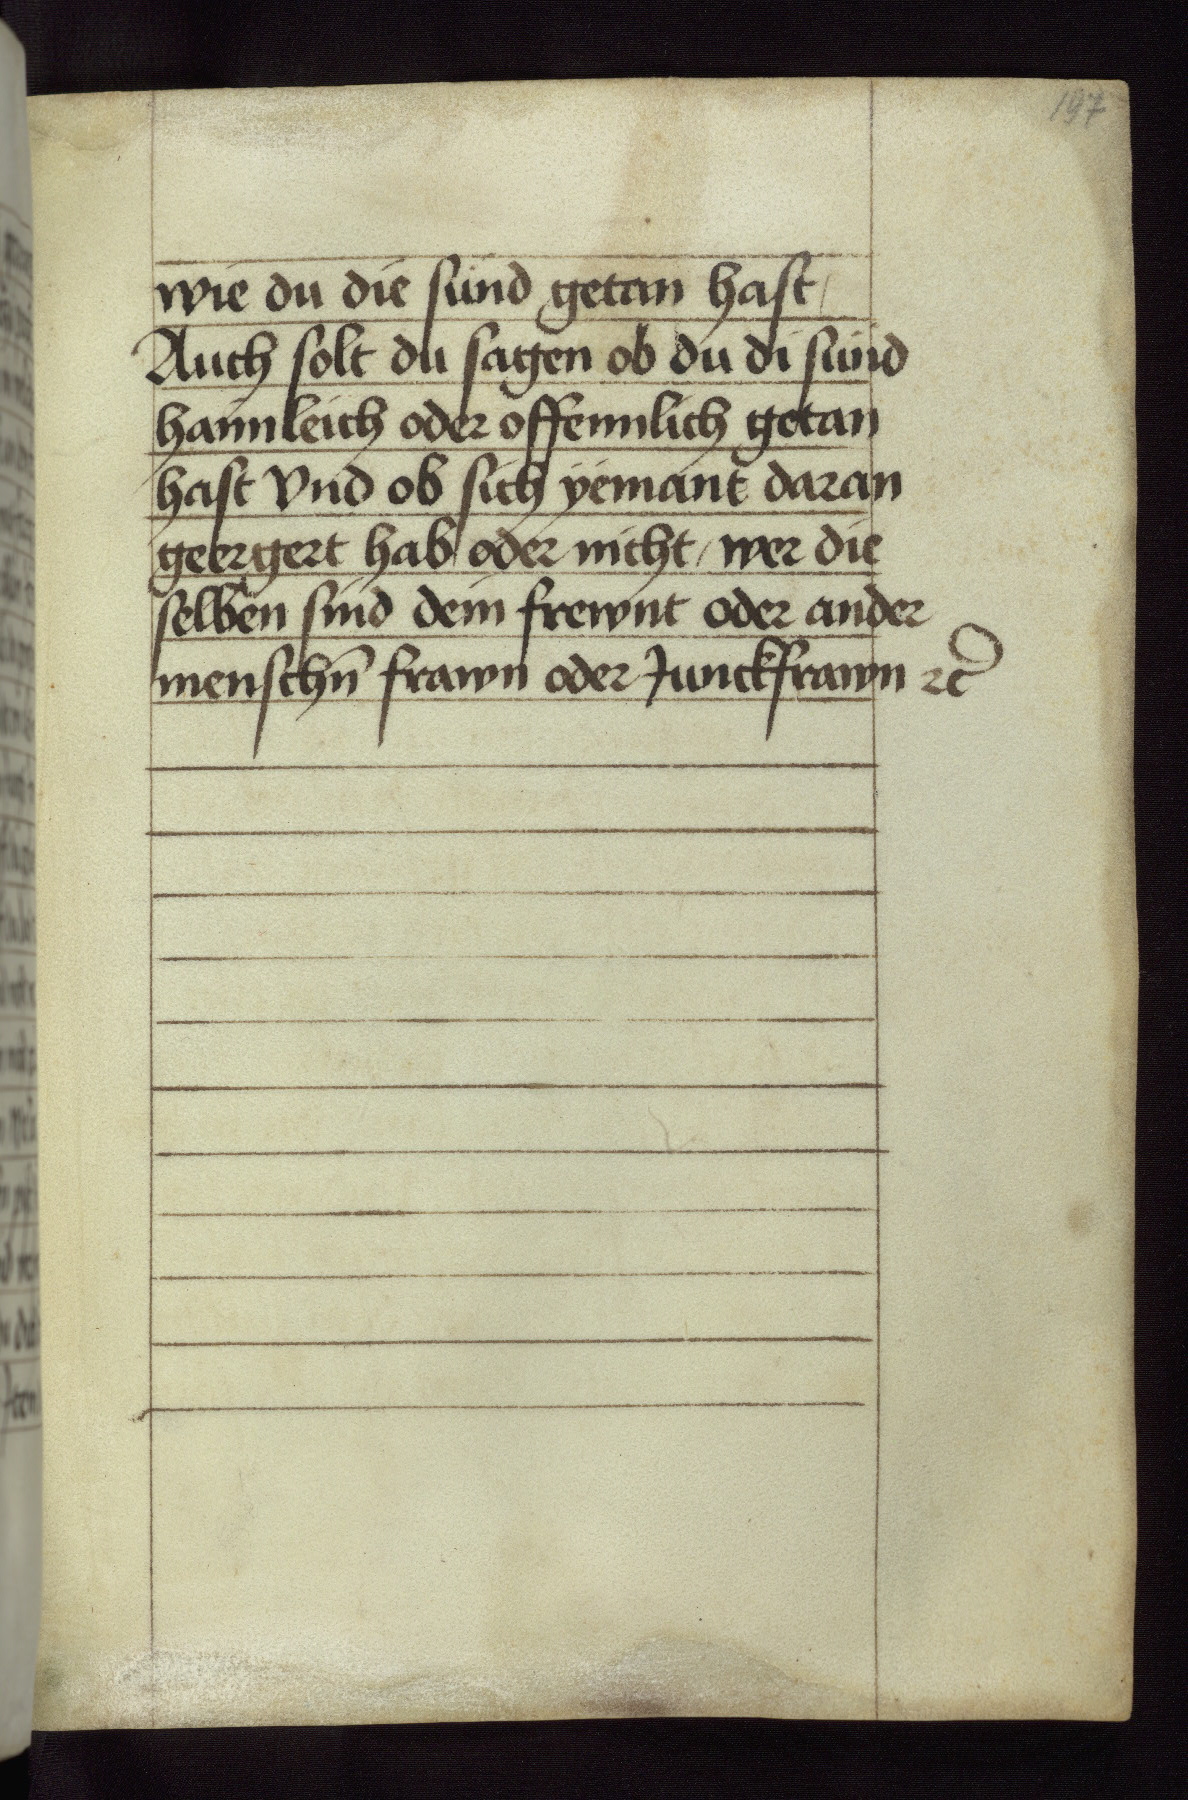 197
wie du die sünd getan hast /
Auch solt du sagen ob du di sünd
haimleich oder offennlich getan
hast Vnd ob sich yemant daran
geergert hab oder nicht / wer die
selben sind dein frewnt oder ander
menschn̄ frawn oder Junckfrawn ꝛc̄